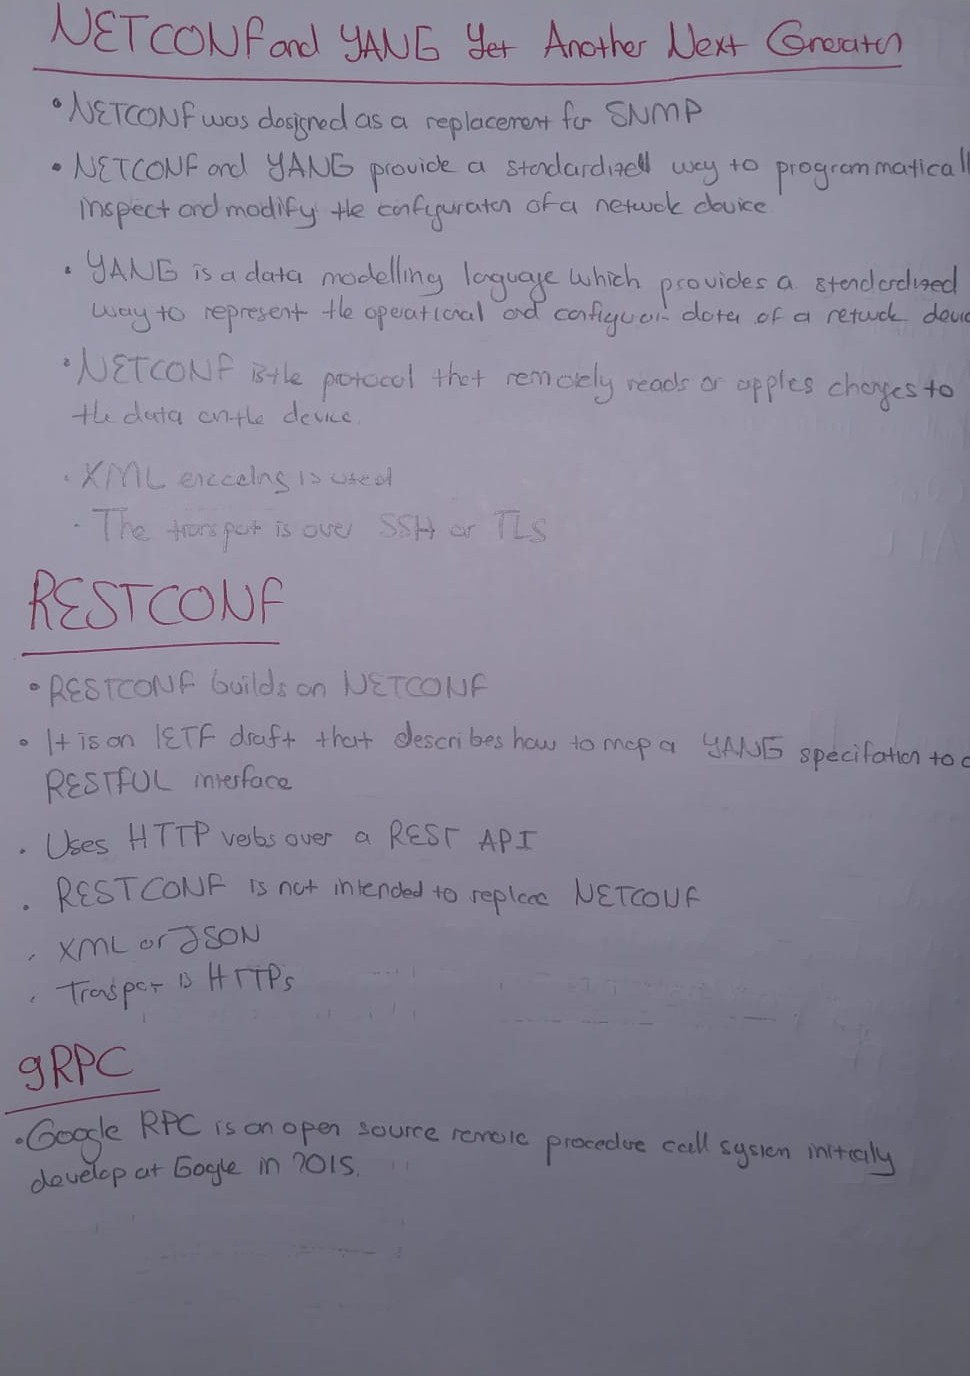 NETCONF and YANG Yet Another Next Generation
• NETCONF was designed as a replacement for SNMP
• NETCONF and YANG provide a standardized way to programmaticall
inspect and modify the configuration of a network device
• YANG is a data modelling language which provides a standardized
way to represent the operational and configuration data of a network devic
• NETCONF is the protocol that remotely reads or apples changes to
the data on the device.
• XML encoding is used
• The transport is over SSH or TLS
RESTCONF
• RESTCONF builds on NETCONF
• It is an IETF draft that describes how to map a YANG specifation to a
RESTFUL interface
• Uses HTTP verbs over a REST API
• RESTCONF is not intended to replace NETCONF
• XML or JSON
• Transport is HTTPs
gRPC
• Google RPC is an open source remote procedure call system initially
develop at Google in 2015.